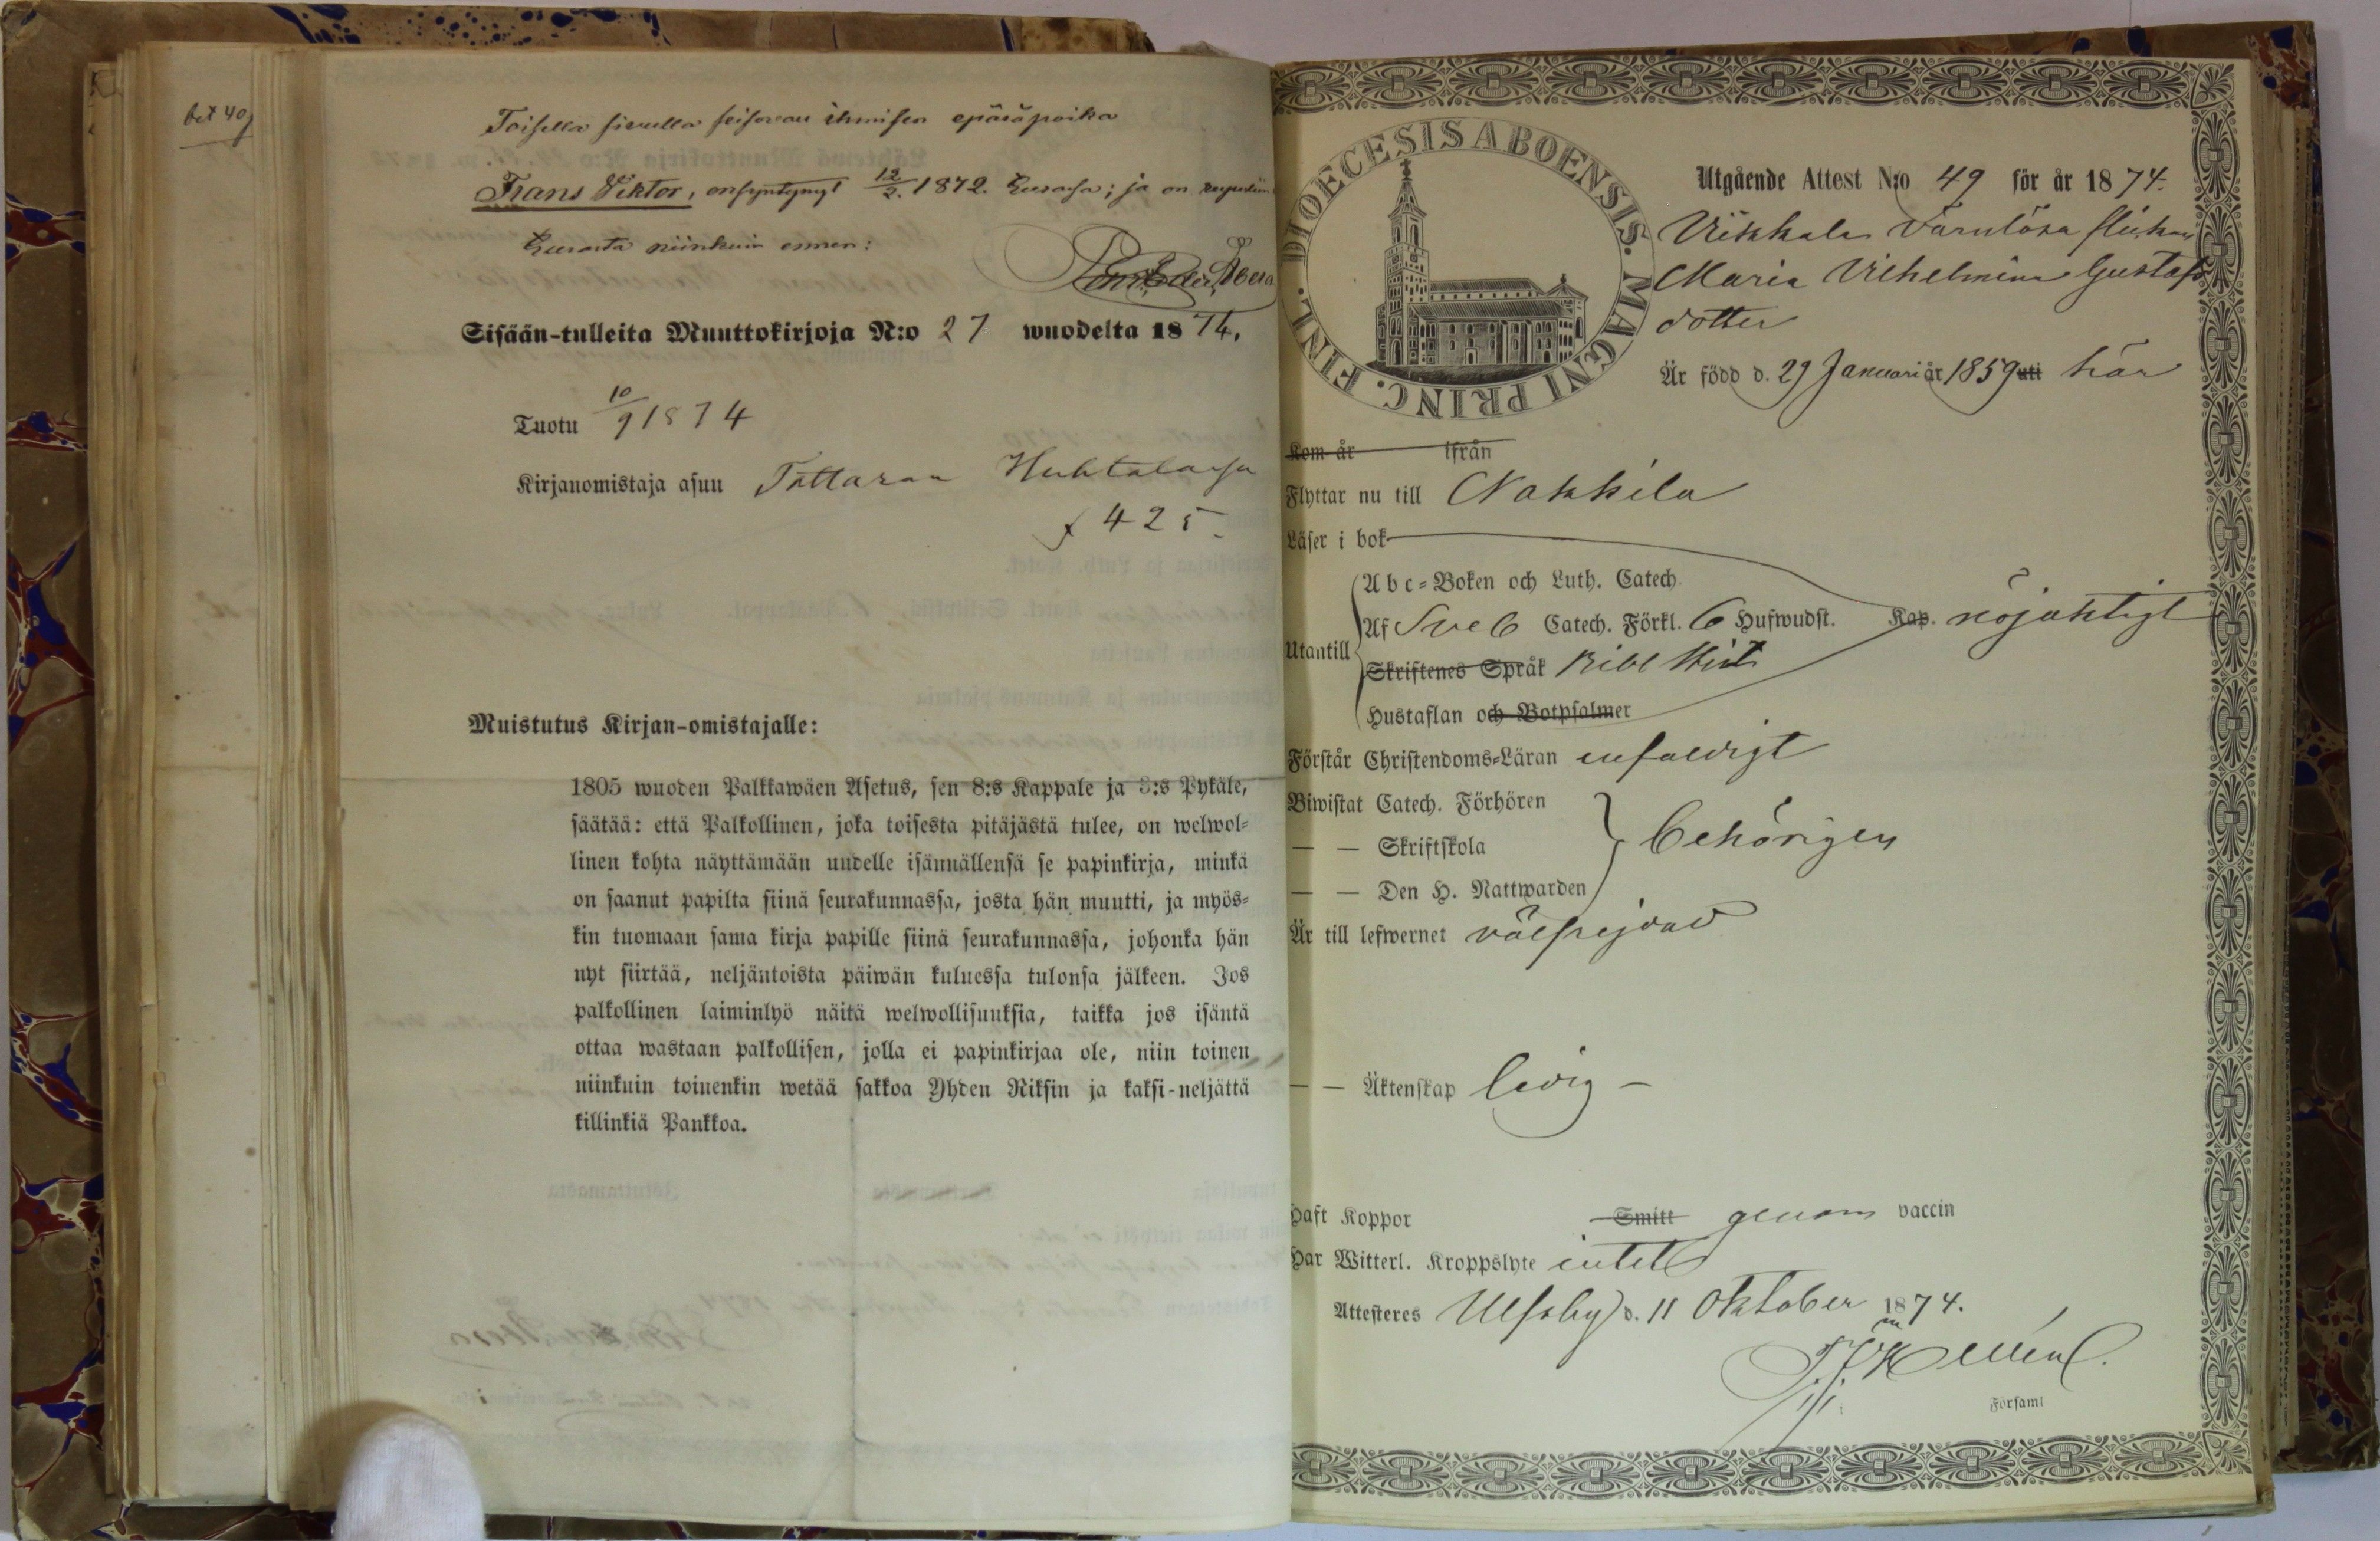 bet 40
Toisella sivulla seisovan ihmisen epäräpoika
Frans Viktor, on syntynyt 12/2. 1872. Eurassa; ja on
Eurasta niinkuin ennen:
Sisään-tulleita Muuttokirjoja N:o 27 wuodelta 1874.
Tuotu 10/9 1874
Kirjanomistaja asuu Tattaran Huhtalassa
f 425
Muistutus Kirjan-omistajalle:
1805 wuoden Palkkawäen Asetus, sen 8:s Kappale ja 3:s Pykäle,
säätää: että Palkollinen, joka toisesta pitäjästä tulee, on welwol-
linen kohta näyttämään uudelle isännällensä se papinkirja, minkä
on saanut papilta siinä seurakunnassa, josta hän muutti, ja myös-
kin tuomaan sama kirja papille siinä seurakunnassa, johonka hän
nyt siirtää, neljäntoista päiwän kuluessa tulonsa jälkeen. Jos
palkollinen laiminlyö näitä welwollisuuksia, taikka jos isäntä
ottaa wastaan palkollisen, jolla ei papinkirjaa ole, niin toinen
niinkuin toinenkin wetää sakkoa Yhden Riksin ja kaksi-neljättä
killinkiä Pankkoa.
DIOECESIS ABOENSIS. MAGNI PRINC. FINL.
Utgående Attest N:o 49 för år 1874.
Viikkala värnlösa flickan
Maria Vilhelmina Gustafs
dotter
Är född d. 29 Januari år 1859 uti här
Kom år ifrån
Flyttar nu till Nakkila
Läser i bok
Abc-Boken och Luth. Catech.
Utantill Af Sveb Catech. Förkl. 6 Hufwudst. Kap. nöjaktigt
Skriftenes Språk Bibl Hist
Hustaflan och Botpsalmer
Förstår Christendoms-Läran enfaldigt
Biwistat Catech. Förhören
— — Skriftskola behörigen
— — Den H. Nattwarden
Är till lefwernet välfrejdad
— — Äktenskap ledig —
Haft Koppor Smitt genom vaccin
Har Witterl. Kroppslyte intet
Attesteres Ulfsby d. 11 Oktober 1874.
Församl